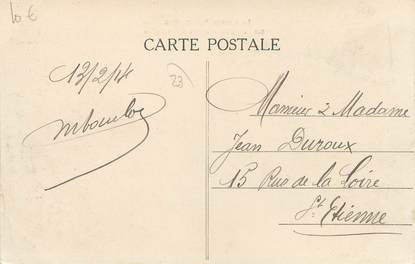 10 €
CARTE POSTALE
13/2/14
23
Monsieur & Madame
Jean Duroux
15 Rue de la Loire
St Etienne